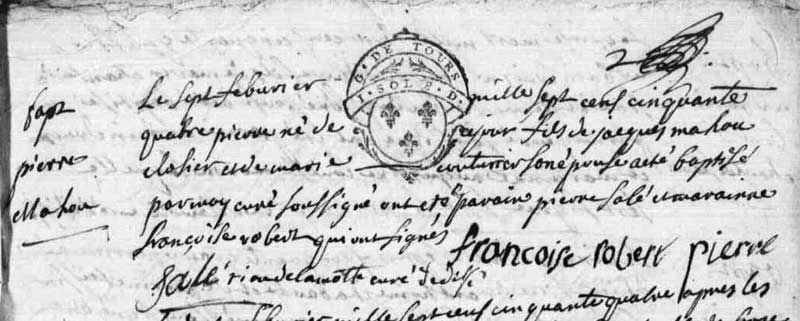 2
G. DE TOURS
1 SOL 8. D.
bapt
pierre
Mahou
Le sept febvrier mille sept cens cinquante
quatre pierre né de cejour fils de jacques mahou
closier et de marie couturier son epouse a eté baptisé
par moy curé soussigné ont eté parain pierre salé et maraine
françoise robert qui ont signés francoise robert pierre
salle curé de
febvrier mille sept cens cinquante quatre apres les